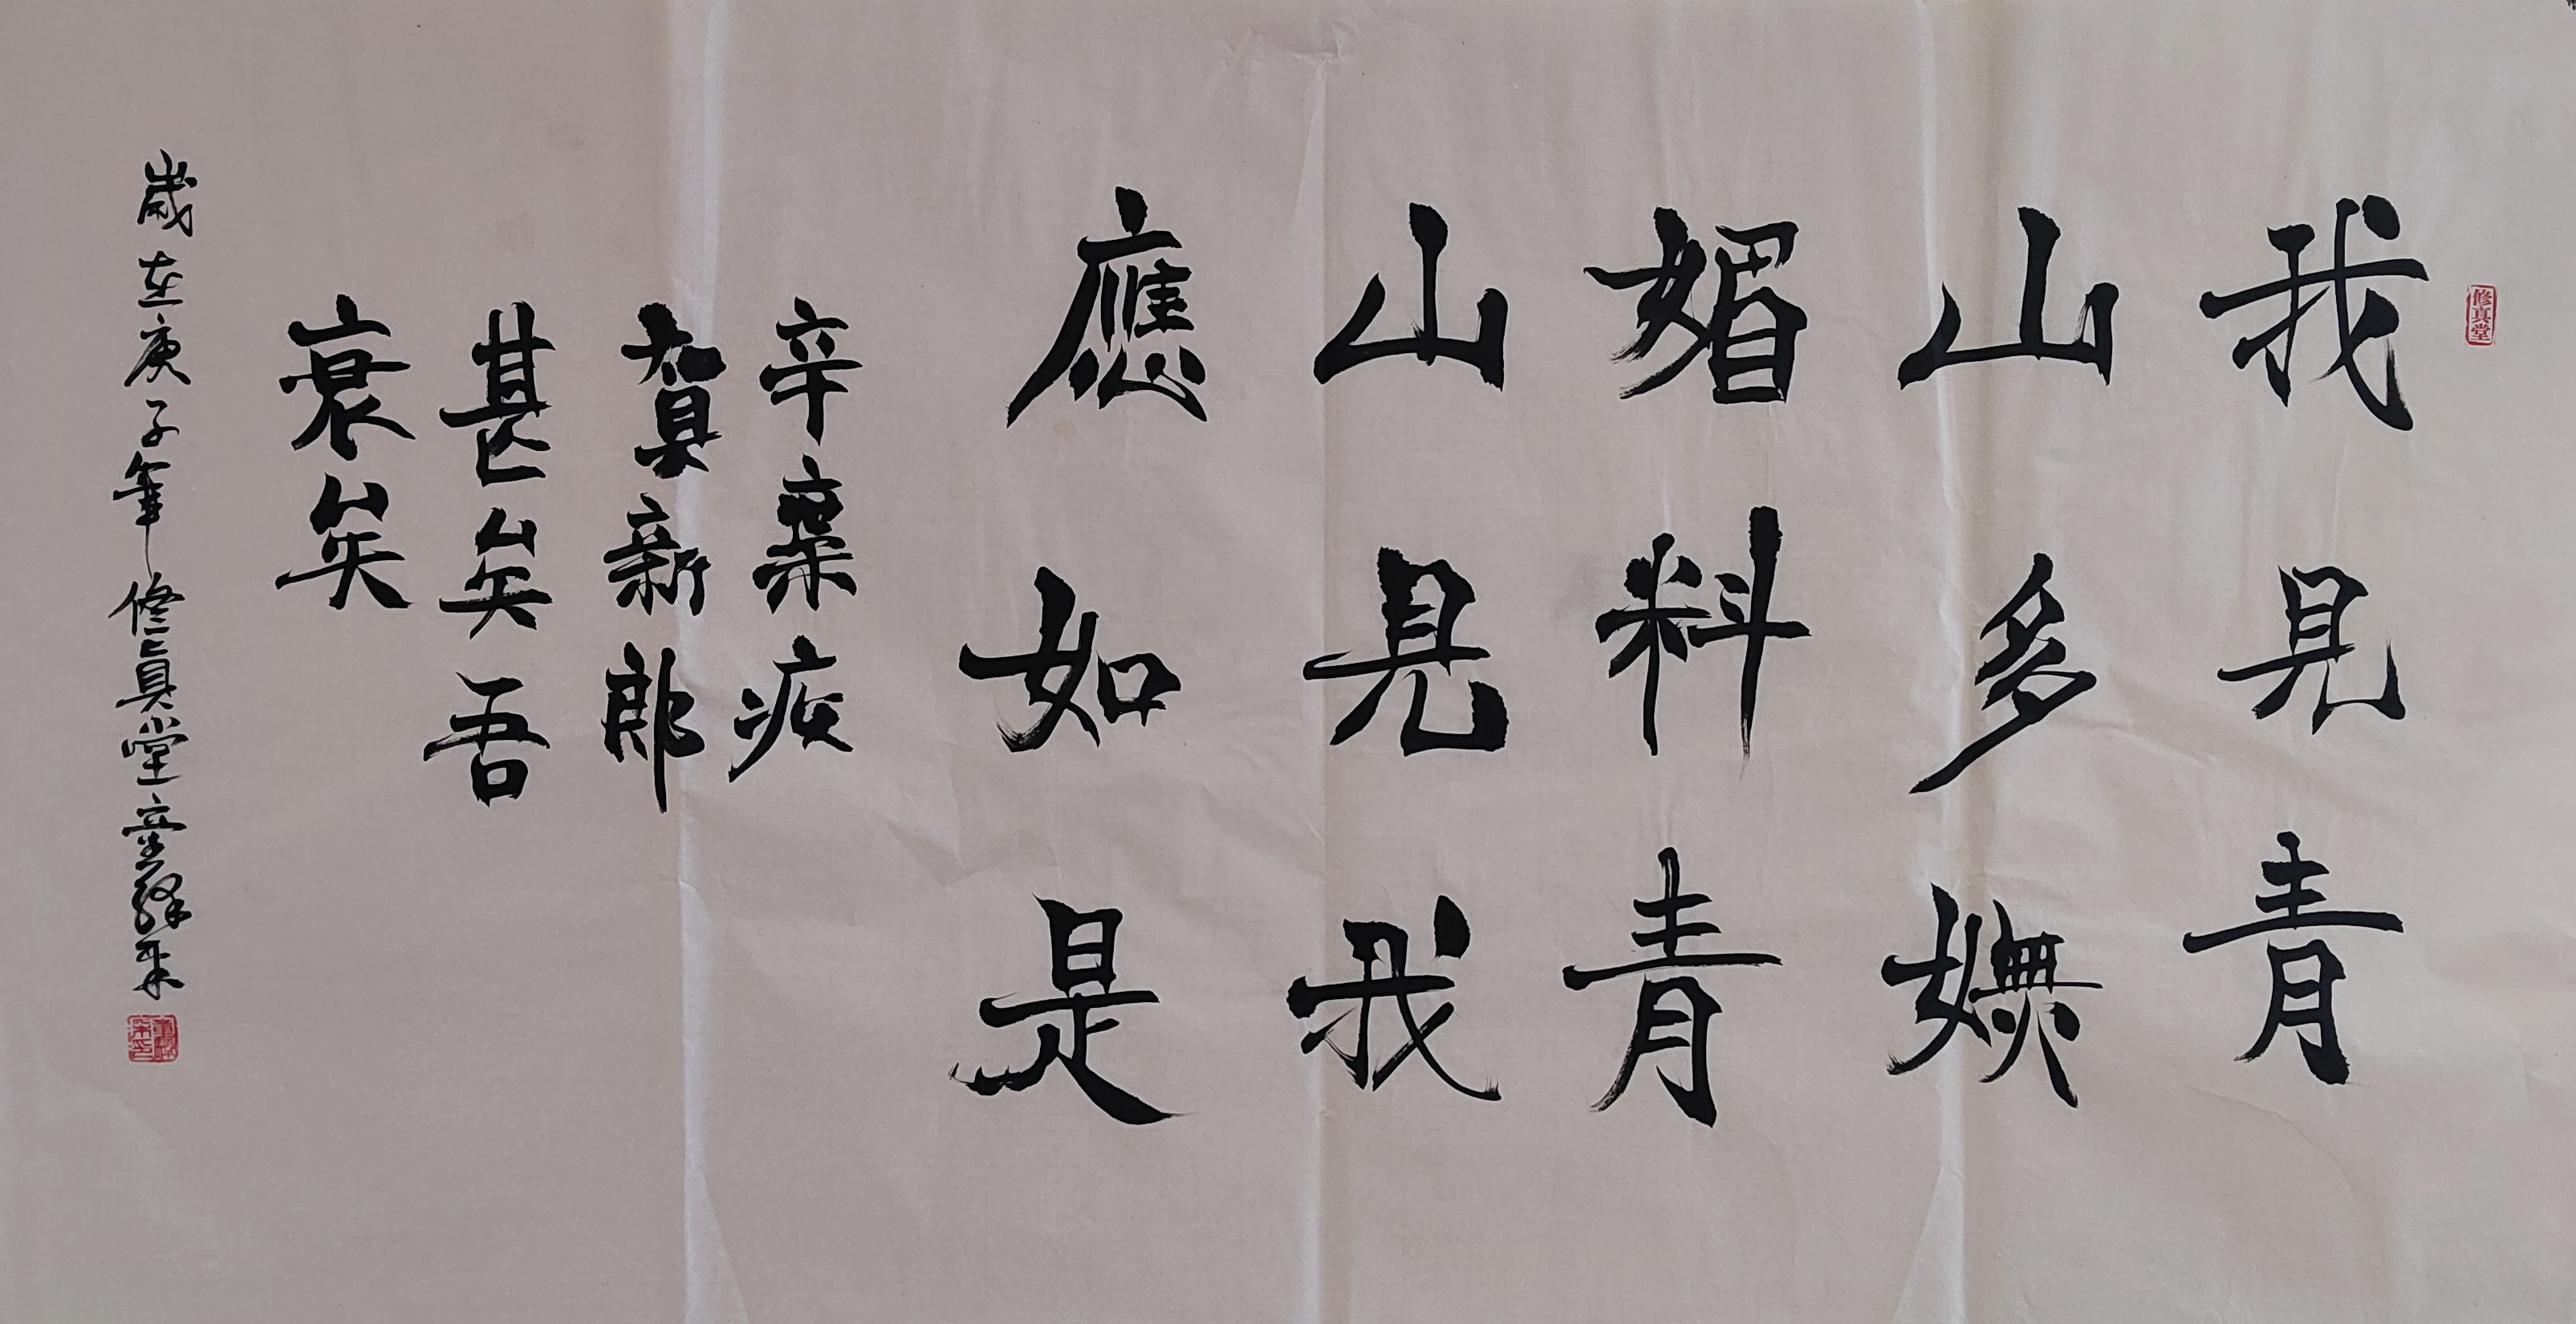 修真堂
我見青
山多嫵
媚料青
山見我
應如是
辛棄疾
賀新郎
甚矣吾
衰矣
歲在庚子年修真堂童